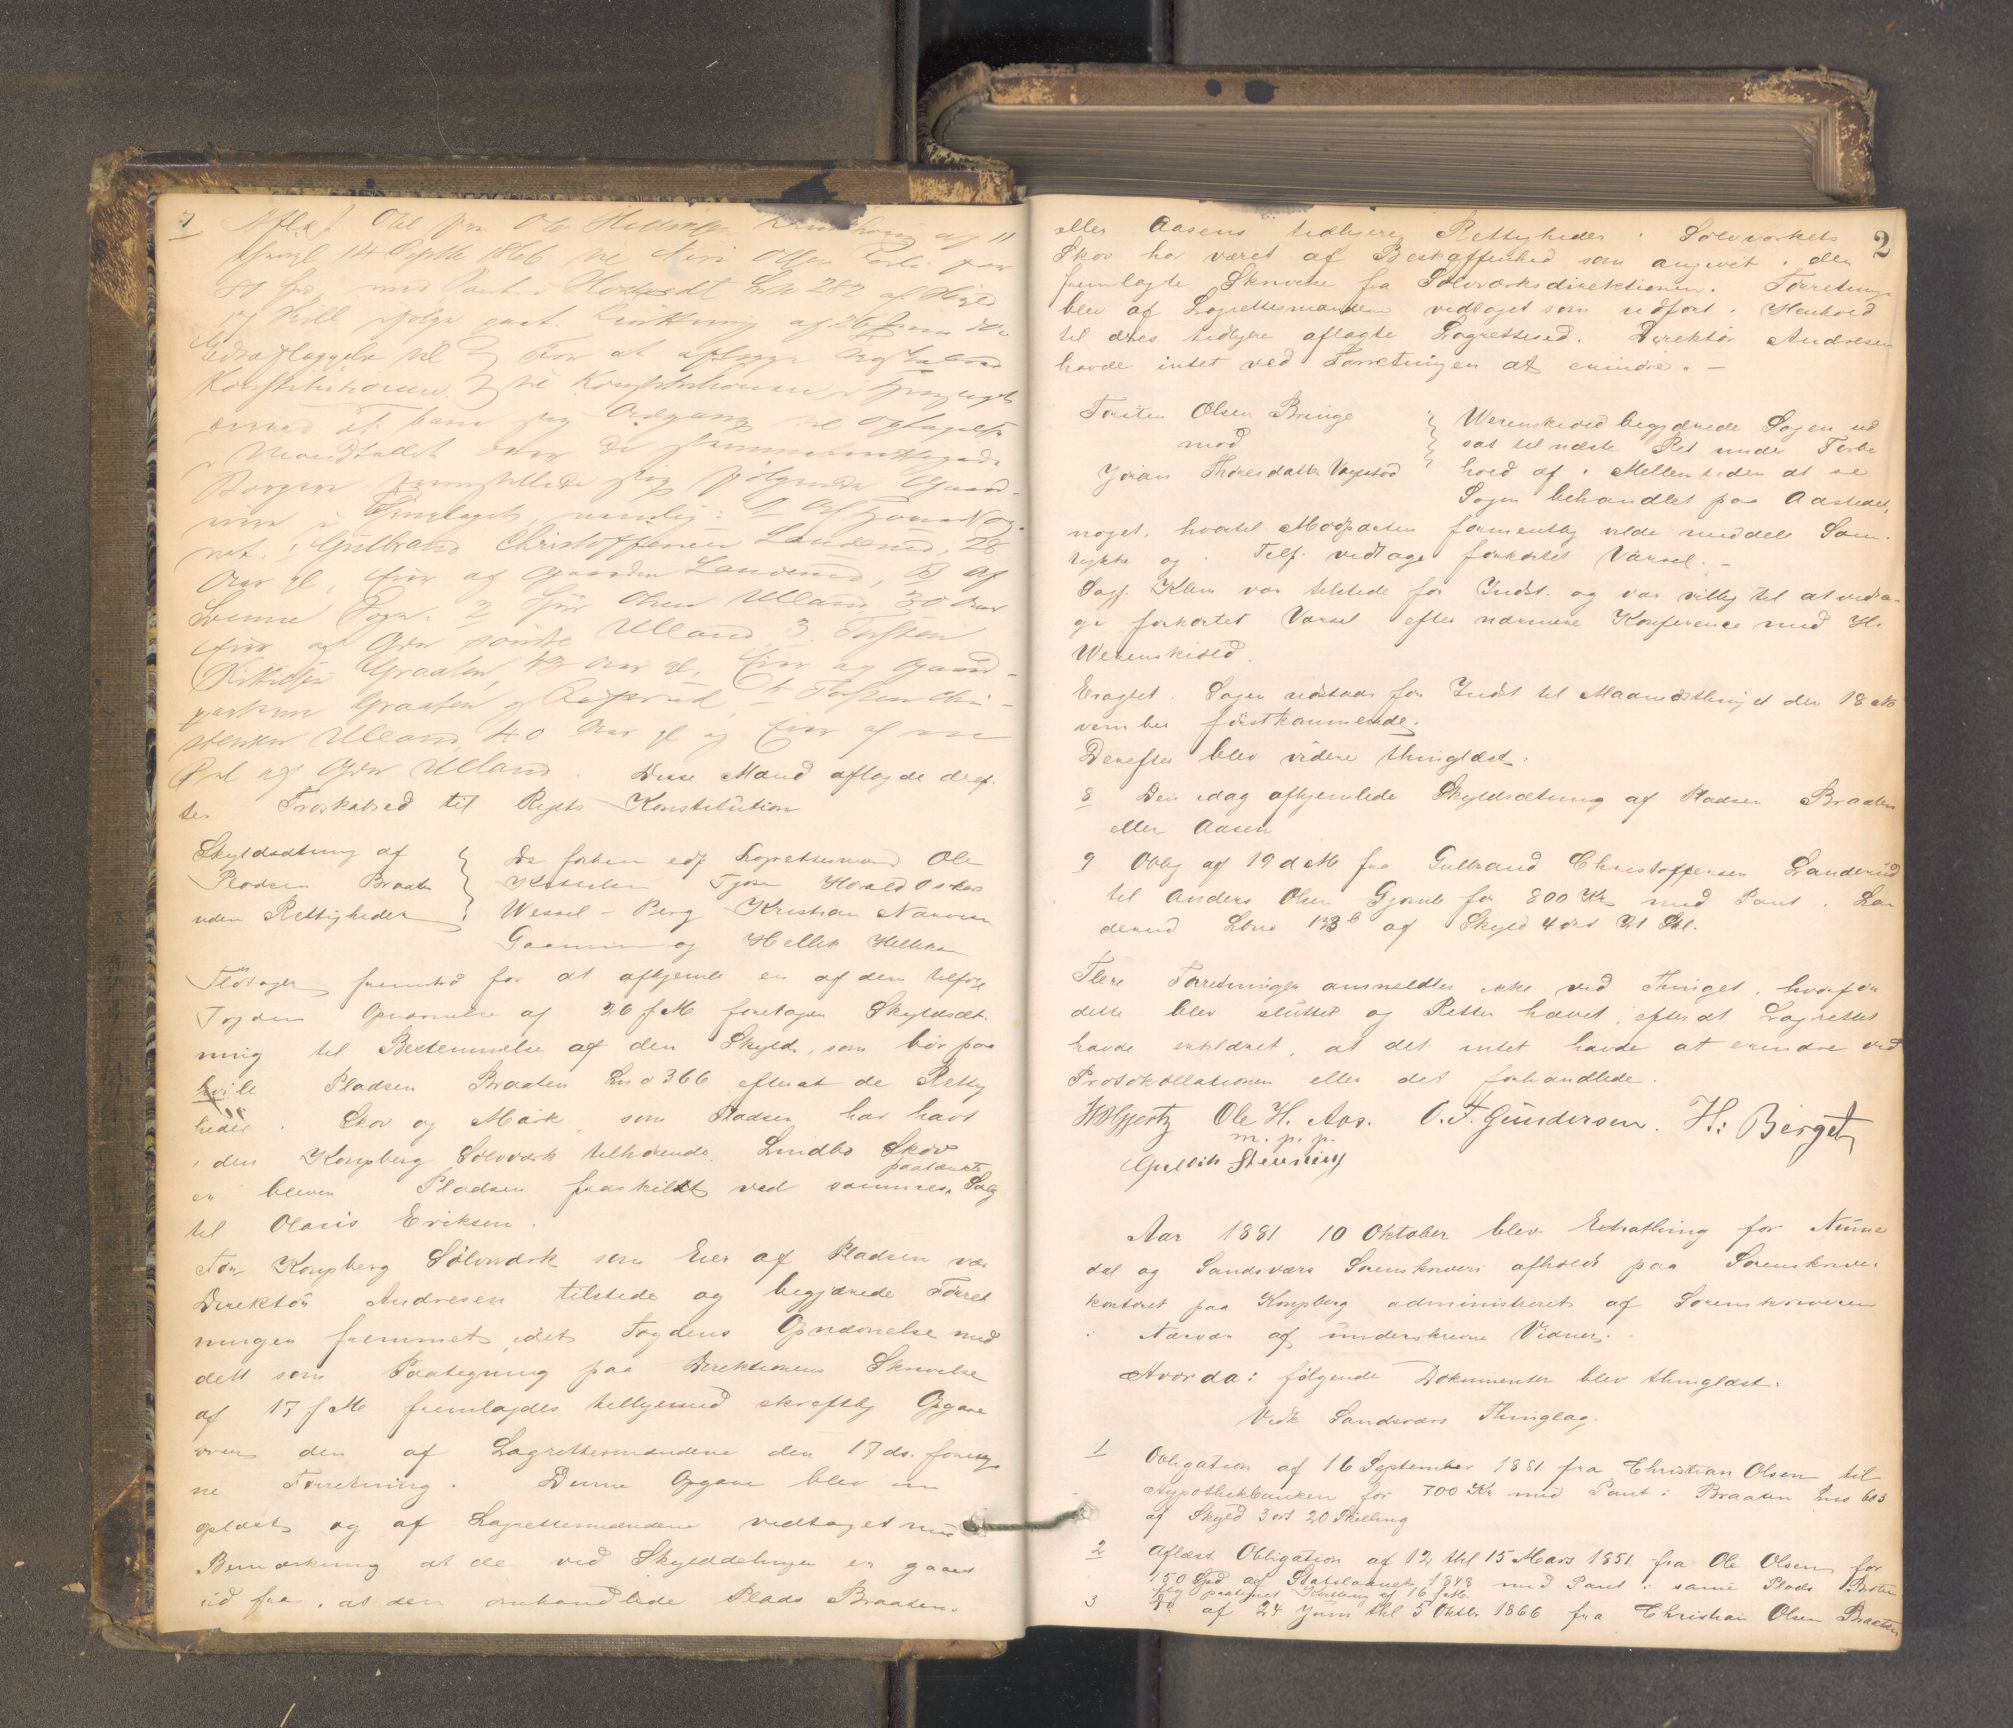 7 Aflæst Obl fra Ole Helliksen af 11
thingl 14 Septbr 1866 til Siri Olsen for
med Pant i Lnr 282 af Skyld
Skill ifølge paat. Kvittering af 26
Edsaflæggelse til For at aflægge Ed
Konstitutionen til Konstitutionen i
Adgang til Optagelse
i Mandtallet over de stemmeberettigede
Borgere fremstillede sig følgende Gaard-
i Thinglaget nemlig: 1
Gulbrand Christoffersen Landerud, 28
Aar gl, Eier af Gaarden Landerud, af
Sogn. 2 Olsen Ulland 30 Aar
Eier af Gdn søndre Ulland 3. Torsten
Kittilsen Graaten, 43 Aar gl, Eier af Gaard-
parten Graaten og 4 Torsten Chri-
stensen Ulland 40 Aar gl og Eier af en
Del af Gdn Ulland. Disse Mænd aflagde deref-
ter Troskabsed til Rigets Konstitution
Skyldsætning af
Pladsen Braaten
uden Rettigheder
De forhen edf Lagrettesmænd Ole
Kittilsen Harald
Wessel-Berg Kristian Narven
Gaamin og Hellik Helliksen
Flosager fremstod for at afhjemle en af dem ifølge
Fogdens Opnævnelse af 26 f M foretagen Skyldsæt-
ning til Bestemmelse af den Skyld, som bør paa
hvile Pladsen Braaten Lno 366 efterat de Rettig
heder i Skov og Mark, som Pladsen har havt
i den Kongsberg Sølvværk tilhørende Lindbo Skov
er bleven Pladsen fraskildt ved sammes paatænkte Salg
til Olaris Eriksen.
For Kongsberg Sølvværk som Eier af Pladsen var
Direktør Andresen tilstede og begjærede Forret
ningen fremmet, idet Fogdens Opnævnelse med
delt som Paategning paa Direktionens Skrivelse
af 17 f M fremlagdes tilligemed skriftlig Opgave
over den af Lagrettesmændene den 17 ds. foretag
ne Forretning. Denne Opgave blev
oplæst og af Lagrettesmændene vedtaget med
Bemærkning at de ved Skylddelingen er gaaet
ud fra, at den omhandlede Plads Braaten
2
eller Aasens tidligere Rettigheder i Sølvværkets
Skov har været af Beskaffenhed som angivet i den
fremlagte Skrivelse fra Sølvværksdirektionen. Forretningen
blev af Lagrettesmændene vedtaget som udført i Henhold
til deres tidligere aflagte Lagrettesed. Direktør Andresen
havde intet ved Forretningen at erindre. —
Torsten Olsen Bringe
mod
Jøran Thoresdatter Vagstad
Werenskiold begjærede Sagen ud
sat til næste Ret under Forbe
hold af i Mellemtiden at se
Sagen behandlet paa Aastedet,
noget, hvortil Modparten formentlig vilde meddele Sam-
tykke og i Tilf. vedtage forkortet Varsel. —
Sagf. Klem var tilstede for Indst. og var villig til at vedta-
ge forkortet Varsel efter nærmere Konference med Hr
Werenskiold.
Eragtet: Sagen udstaar for Indst til Maanedsthinget den 18 No
vember førstkommende.
Derefter blev videre thinglæst.
8 Den idag afhjemlede Skyldsætning af Pladsen Braaten
eller Aasen
9 Oblig af 19 d M fra Gulbrand Christoffersen Landerud
til Anders Olsen Gjerde for 800 Kr med Pant i Lan
derud Lbno 123 b af Skyld 4 ort 21 Skl.
Flere Forretninger anmeldtes ikke ved Thinget, hvorfor
dette blev sluttet og Retten hævet, efterat Lagrettet
havde erklæret, at det intet havde at erindre ved
Protokollationen eller det forhandlede.
Ole H. Aas. O. T. Gundersen. H: Berget
m. p. p.
Gullik Stenning
Aar 1881 10 Oktober blev Extrathing for Nume
dal og Sandsværs Sorenskriveri afholdt paa Sorenskriver
kontoret paa Kongsberg administreret af Sorenskriveren
i Nærvær af underskrevne Vidner.
Hvorda: følgende Dokumenter blev thinglæst.
Vedk Sandsværs Thinglag.
1 Obligation af 16 September 1881 fra Christian Olsen til
Hypothekbanken for 700 Kr med Pant i Braaten Lno 603
af Skyld 3 ort 20 Skilling
2 Aflæst Obligation af 12 thl 15 Mars 1851 fra Ole Olsen for
150 Spd af Statslaanet 1848 med Pant i samme Plads Braten
iflg paategnet Kvittering af 16 f M.
3 Do af 24 Juni thl 5 Oktbr 1866 fra Christian Olsen Braaten